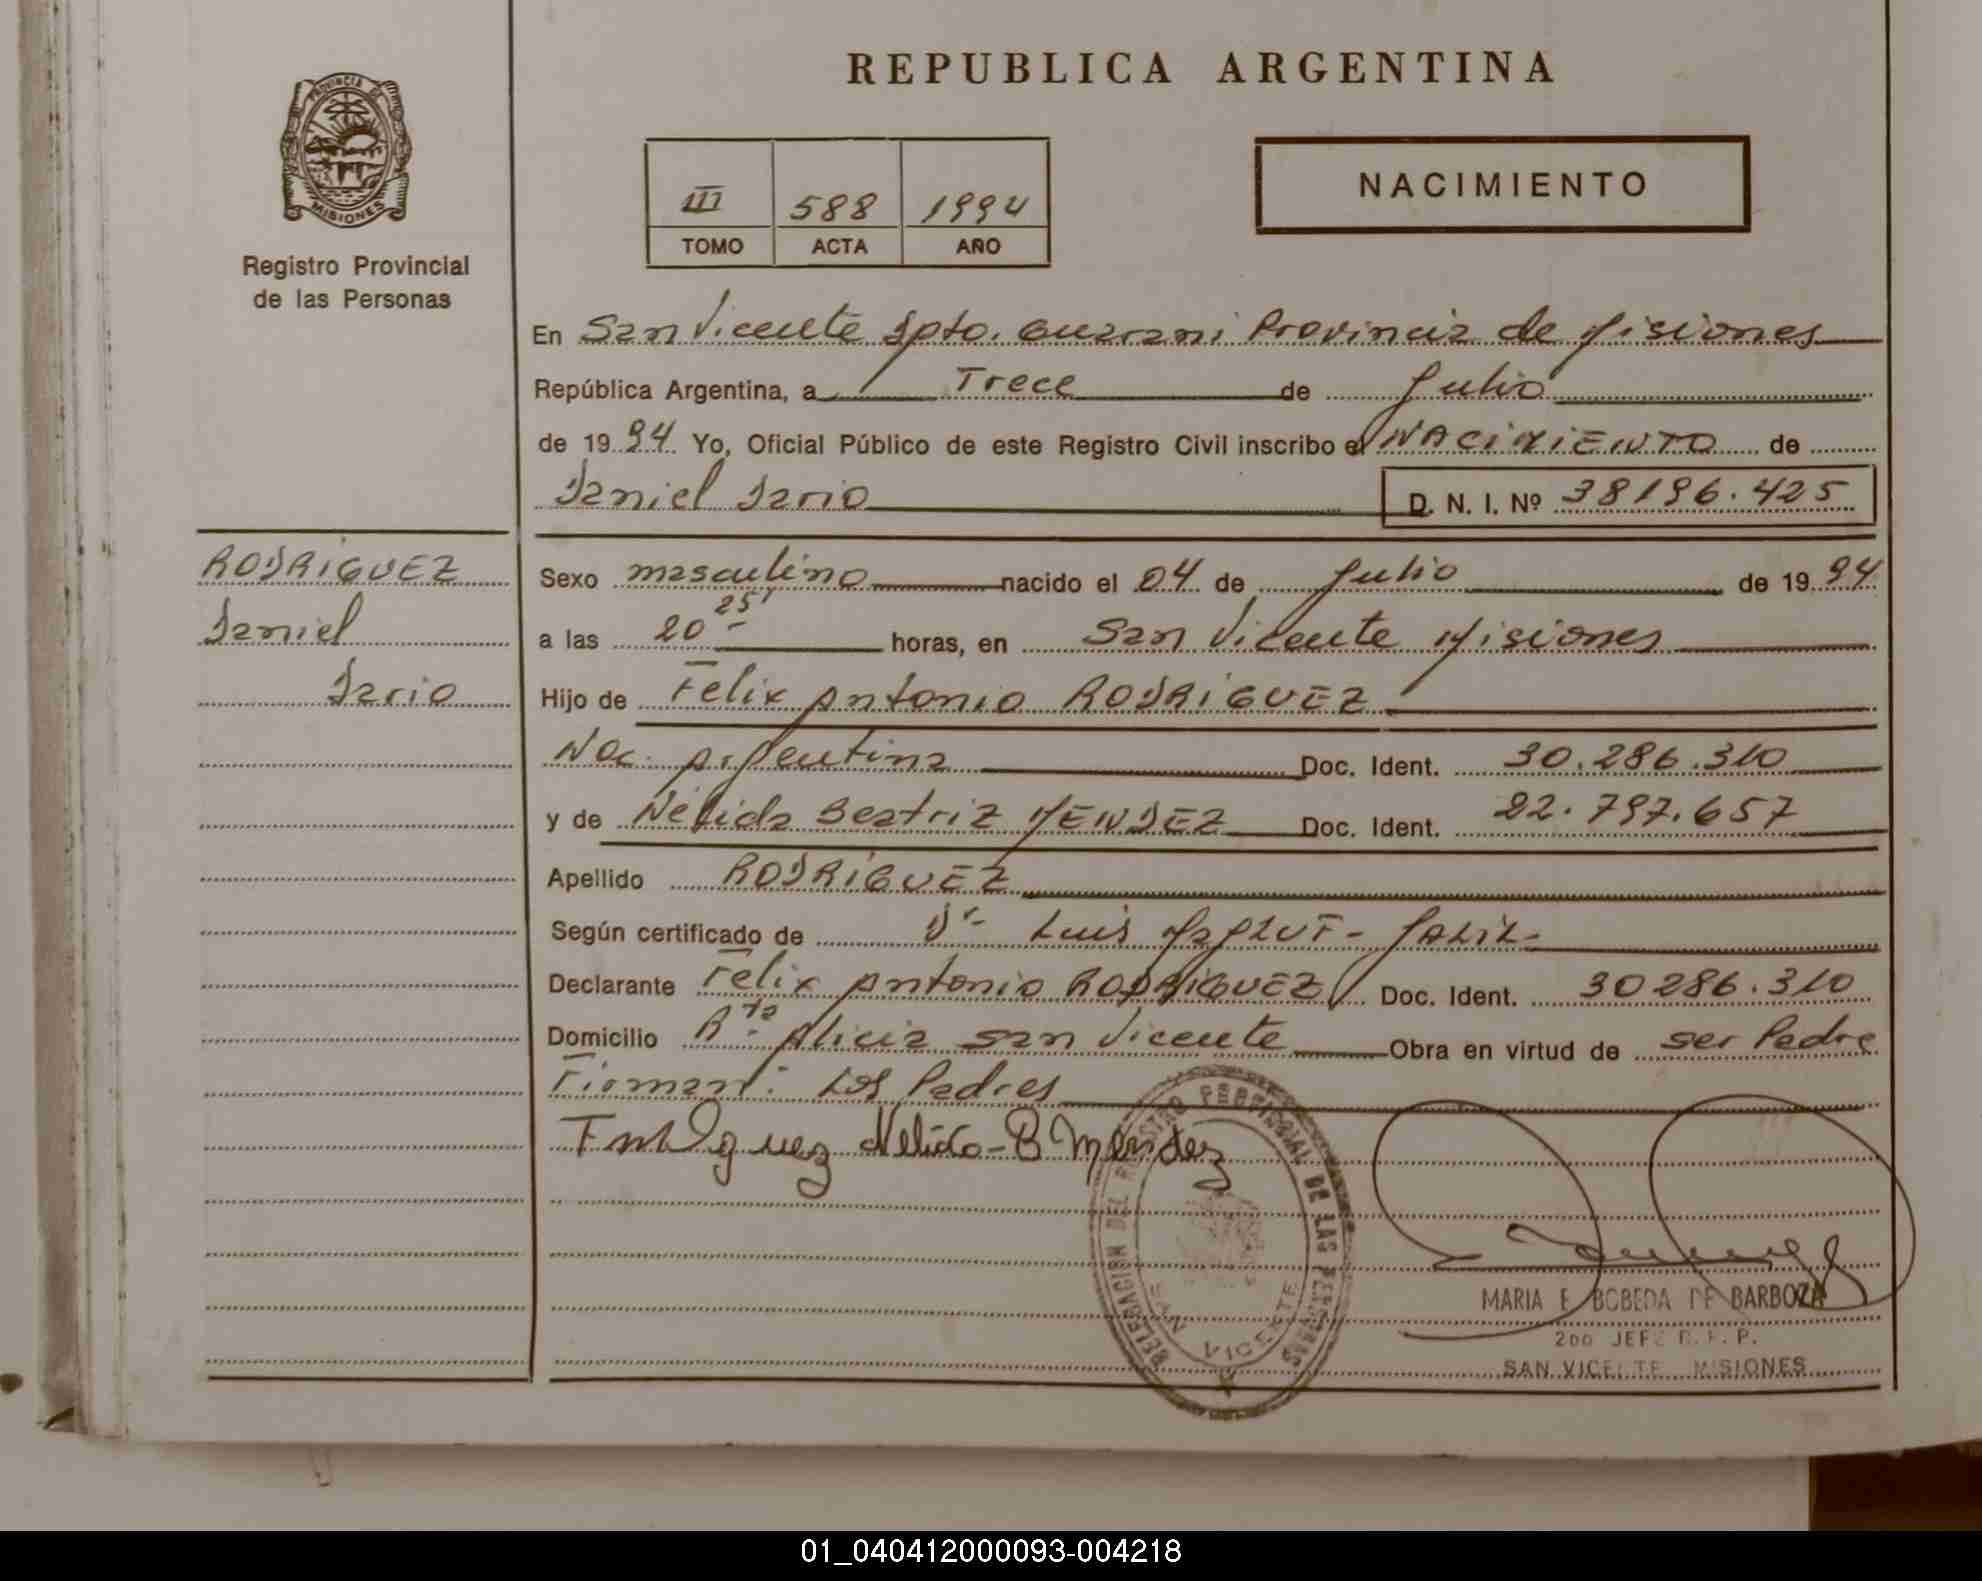 REPUBLICA ARGENTINA
PROVINCIA DE
MISIONES
Registro Provincial
de las Personas
III 588 1994
TOMO ACTA AÑO
NACIMIENTO
En San Vicente Dpto. Guarani Provincia de Misiones
República Argentina, a Trece de Julio
de 1994 Yo, Oficial Público de este Registro Civil inscribo el NACIMIENTO de
Daniel Dario D. N. I. Nº 38196.425
RODRIGUEZ
Daniel
Dario
Sexo masculino nacido el 04 de Julio de 1994
a las 20 25' horas, en San Vicente Misiones
Hijo de Felix Antonio RODRIGUEZ
Nac. Argentina Doc. Ident. 30.286.310
y de Nélida Beatriz MENDEZ Doc. Ident. 22.797.657
Apellido RODRIGUEZ
Según certificado de Dr Luis
Declarante Felix Antonio RODRIGUEZ Doc. Ident. 30286.310
Domicilio Rta Alicia San Vicente Obra en virtud de ser Padre
Firman: Los Padres
Nelida-B Mendez
DELEGACION DEL REGISTRO PROVINCIAL DE LAS PERSONAS
SAN VICENTE
MARIA E BOBEDA DE BARBOZA
2do JEFE R. P. P.
SAN VICENTE MISIONES
01_040412000093-004218